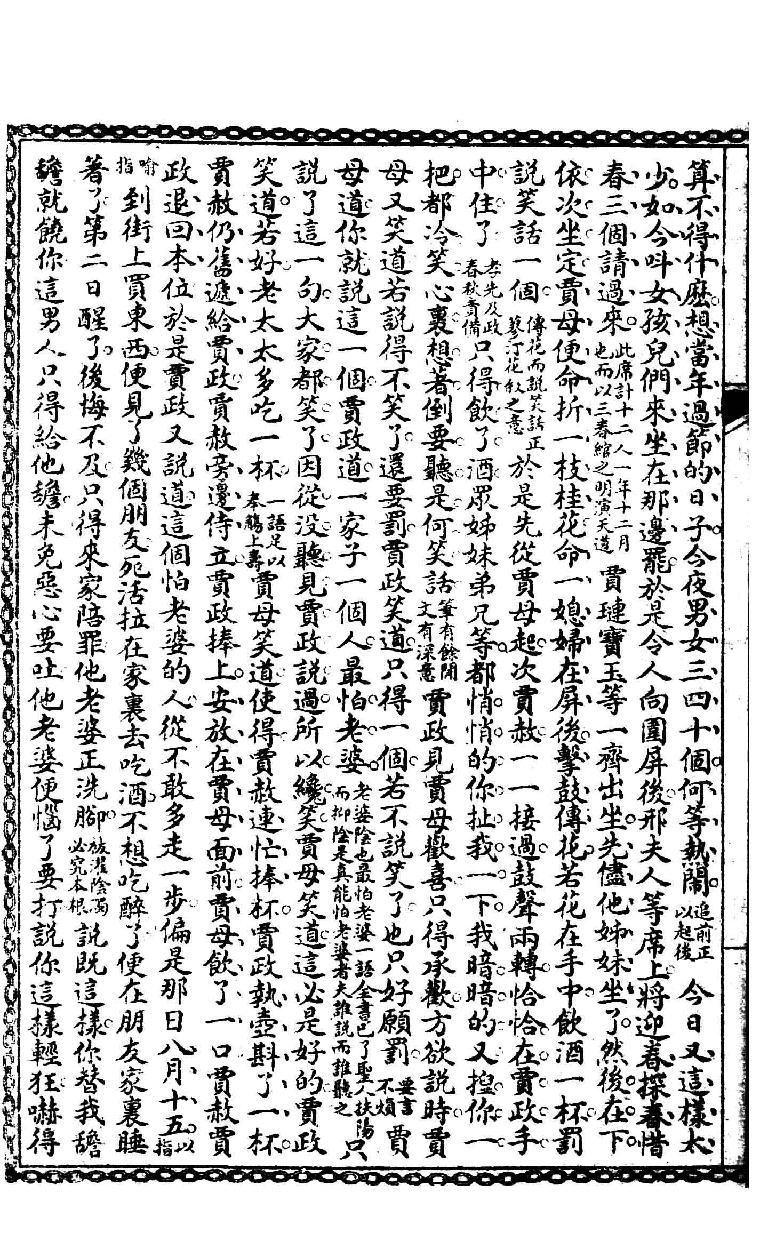 算不得什麽想當年過節的日子今夜男女三四十個何等熱鬧追前正以起後今日又這樣太
少如今呌女孩兒們來坐在那邊罷於是令人向圍屏後邢夫人等席上將迎春探春惜
春三個請過來此席計十二人一年十二月也而以三春綰之明演天道賈璉寶玉等一齊出坐先儘他姊妹坐了然後在下
依次坐定賈母便命折一枝桂花命一媳婦在屏後擊鼓傳花若花在手中飲酒一杯罰
說笑話一個傳花而說笑話正蓼汀花溆之意於是先從賈母起次賈赦一一接過鼓聲兩轉恰恰在賈政手
中住了孝先及政春秋責備只得飲了酒眾姊妹弟兄等都悄悄的你扯我一下我暗暗的又揑你一
把都冷笑心裏想著倒要聽是何笑話筆有餘閒文有深意賈政見賈母歡喜只得承歡方欲說時賈
母又笑道若說得不笑了還要罰賈政笑道只得一個若不說笑了也只好願罰要言不煩賈
母道你就說這一個賈政道一家子一個人最怕老婆老婆陰也最怕老婆一語全書已了聖人扶陽而抑陰是真能怕老婆者夫誰說而誰聽之只
說了這一句大家都笑了因從沒聽見賈政說過所以纔笑賈母笑道這必是好的賈政
笑道若好老太太多吃一杯一語足以奉觴上壽賈母笑道使得賈赦連忙捧杯賈政執壺斟了一杯
賈赦仍舊遞給賈政賈赦旁邊侍立賈政捧上安放在賈母面前賈母飲了一口賈赦賈
政退回本位於是賈政又說道這個怕老婆的人從不敢多走一步偏是那日八月十五以指
喻指到街上買東西便見了幾個朋友死活拉在家裏去吃酒不想吃醉了便在朋友家裏睡
著了第二日醒了後悔不及只得來家陪罪他老婆正洗腳祓濯陰濁必究本根說既這樣你替我䑛
䑛就饒你這男人只得給他䑛未免惡心要吐他老婆便惱了要打說你這樣輕狂嚇得